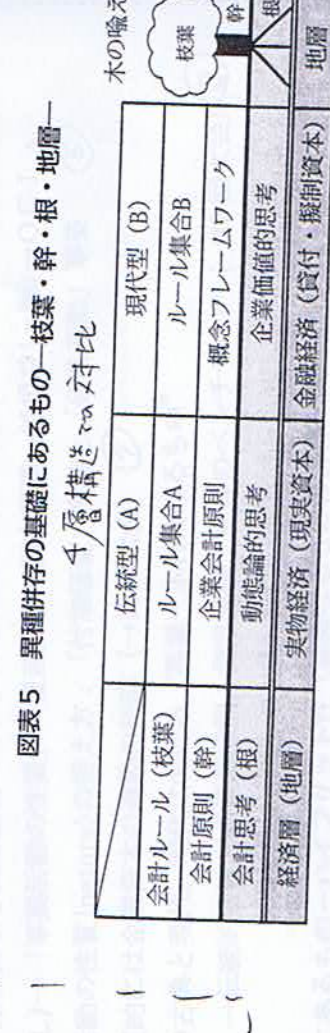 図表5 異種併存の基礎にあるもの―枝葉・幹・根・地層―
4層構造での対比
伝統型 (A) 現代型 (B) 木の喩え
会計ルール (枝葉) ルール集合A ルール集合B 枝葉
会計原則 (幹) 企業会計原則 概念フレームワーク 幹
会計思考 (根) 動態論的思考 企業価値的思考 根
経済層 (地層) 実物経済 (現実資本) 金融経済 (貸付・擬制資本) 地層